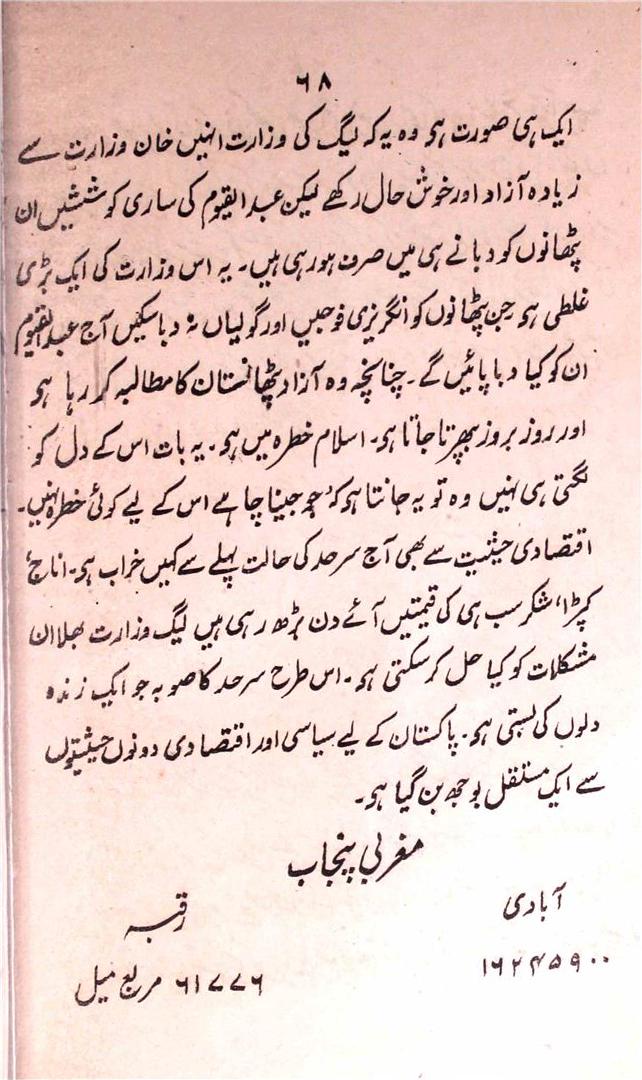 ۶۸
ایک ہی صورت ہو وہ یہ کہ لیگ کی وزارت انہیں خان وزارت سے
زیادہ آزاد اور خوش حال رکھے لیکن عبدالقیوم کی ساری کوششیں ان
پٹھانوں کو دبانے ہی میں صرف ہورہی ہیں۔ یہ اس وزارت کی ایک بڑی
غلطی ہو جن پٹھانوں کو انگریزی فوجیں اور گولیاں نہ دبا سکیں آج عبدالقیوم
ان کو کیا دبا پائیں گے۔ چنانچہ وہ آزاد پٹھانستان کا مطالبہ کر رہا ہو
اور روز بروز بپھرتا جاتا ہو۔ اسلام خطرہ میں ہو۔ یہ بات اس کے دل کو
لگتی ہی نہیں وہ تو یہ جانتا ہو کہ جو جینا چاہے اس کے لیے کوئی خطرہ نہیں۔
اقتصادی حیثیت سے بھی آج سرحد کی حالت پہلے سے کہیں خراب ہو۔ اناج،
کپڑا، شکر سب ہی کی قیمتیں آئے دن بڑھ رہی ہیں لیگ وزارت بھلا ان
مشکلات کو کیا حل کرسکتی ہو۔ اس طرح سرحد کا صوبہ جو ایک زندہ
دلوں کی بستی ہو۔ پاکستان کے لیے سیاسی اور اقتصادی دونوں حیثیتوں
سے ایک مستقل بوجھ بن گیا ہو۔
مغربی پنجاب
آبادی رقبہ
۱۶۲۴۵۹۰۰ ۶۱۷۷۶ مربع میل